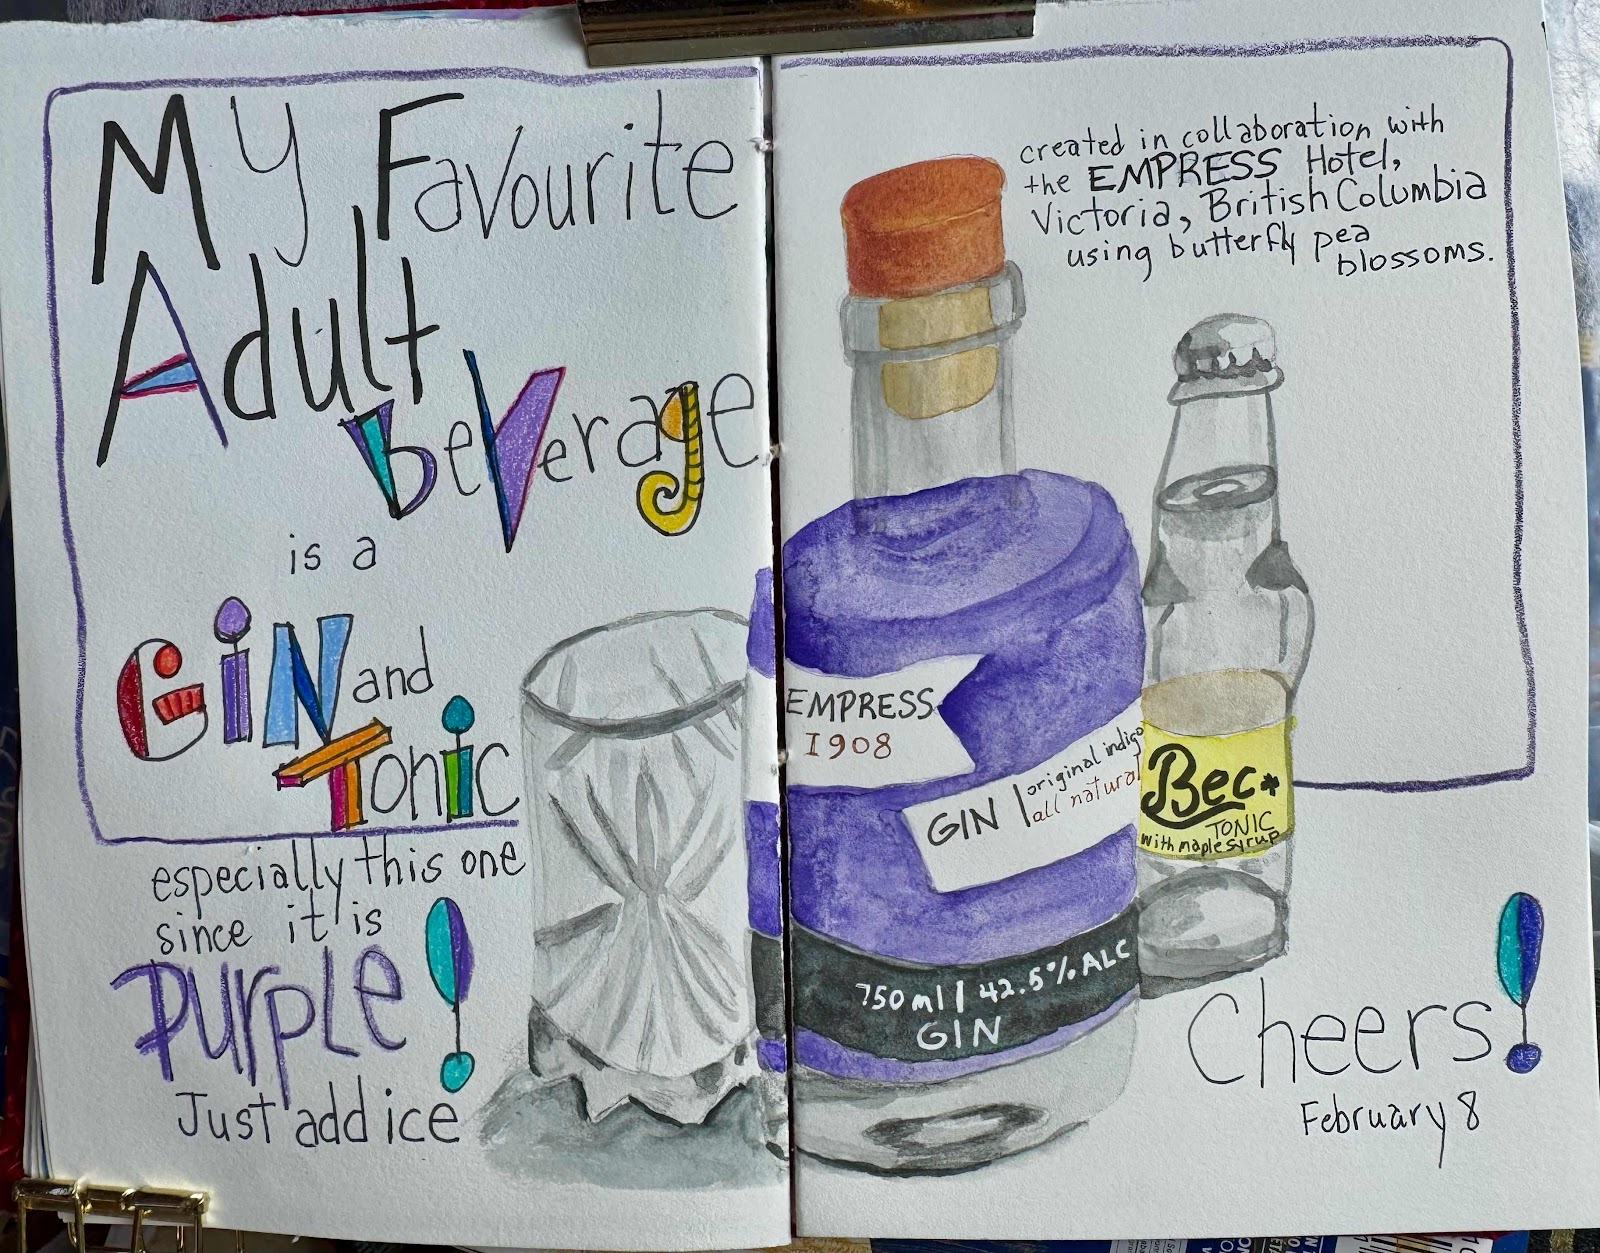 My Favourite
Adult
BeVerage
is a
GiN and
Tonic
especially this one
since it is
Purple!
Just add ice
created in collaboration with
the EMPRESS Hotel,
Victoria, British Columbia
using butterfly pea
blossoms.
EMPRESS
1908
GIN | original indigo
all natural
Bec*
TONIC
with maple syrup
750 ml | 42.5% ALC
GIN
Cheers!
February 8